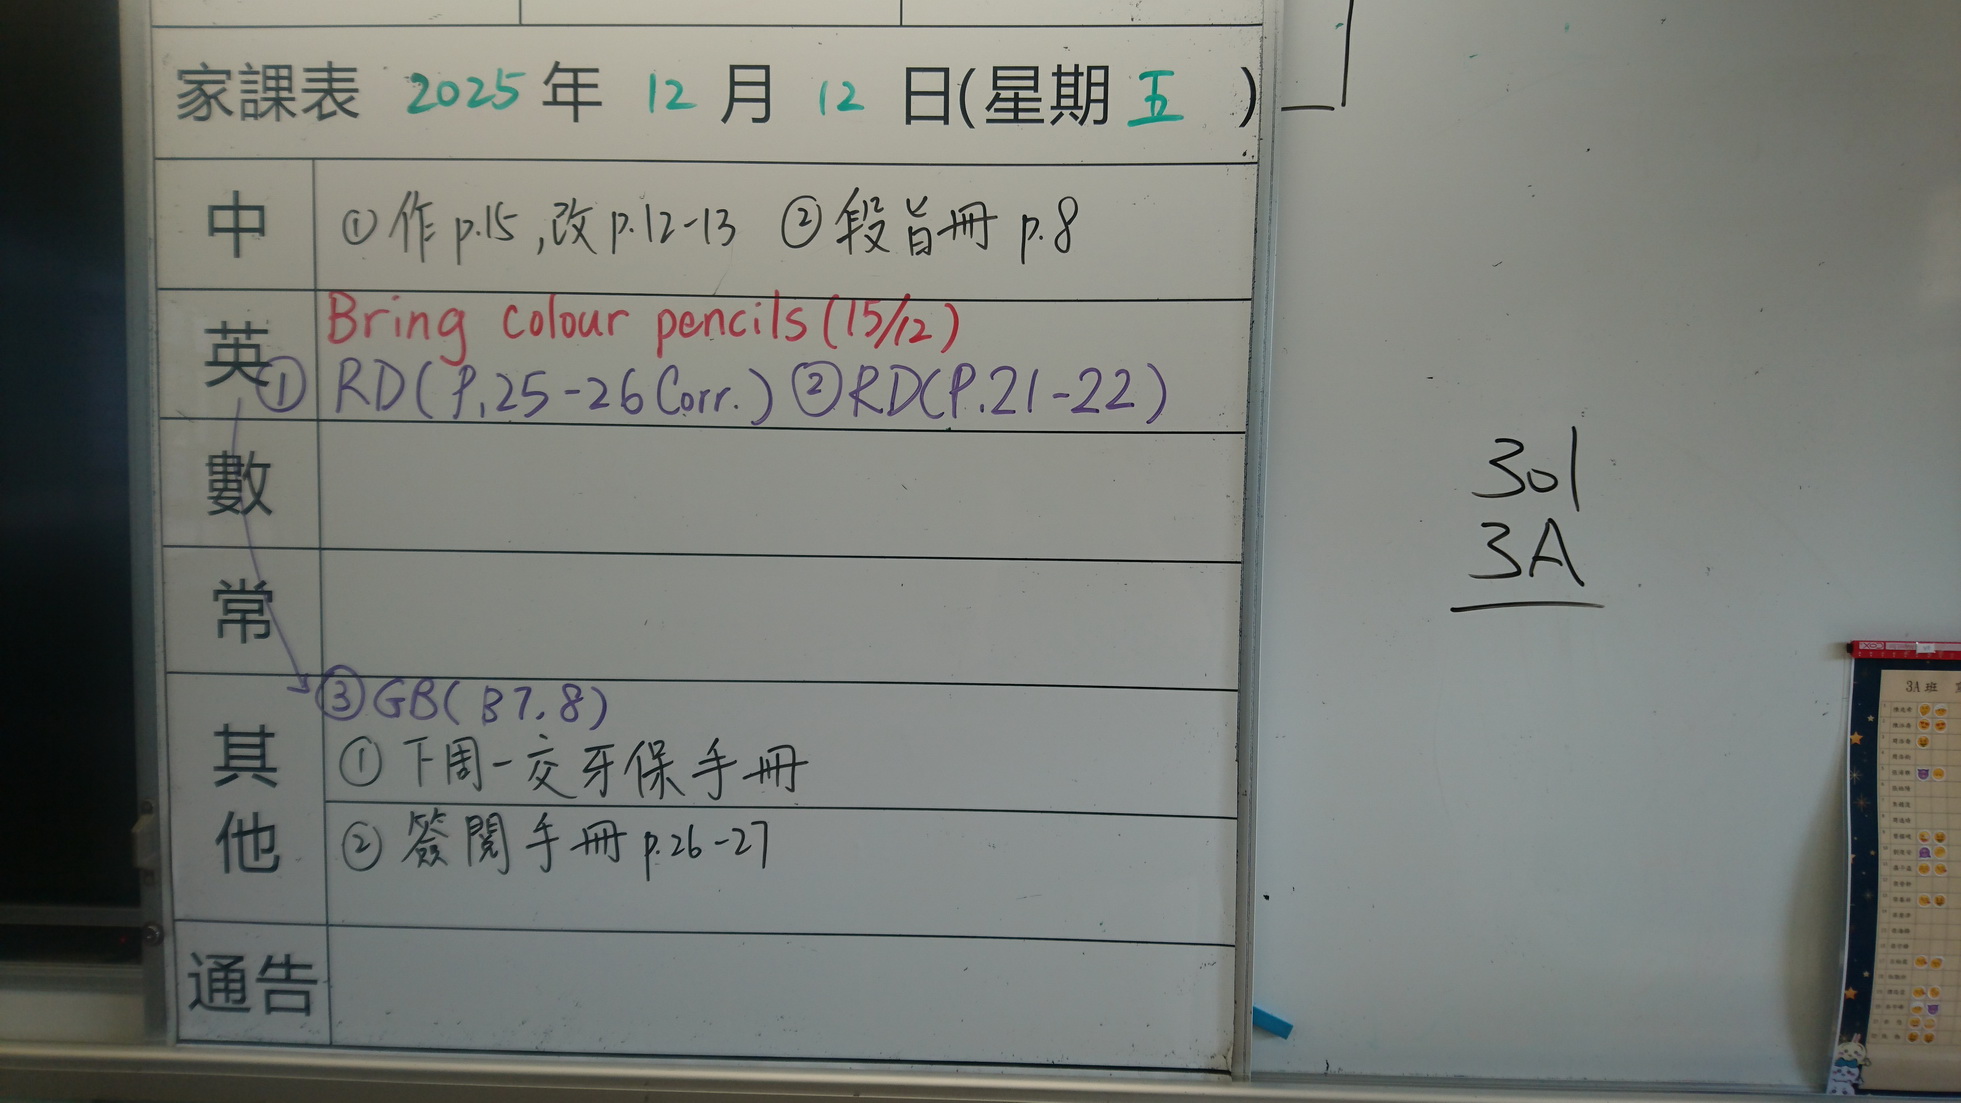 家課表 2025 年 12 月 12 日(星期 五 )
中 ①作 p.15,改 p.12-13 ②段旨冊 p.8
英 Bring colour pencils (15/12)
① RD(P.25-26 Corr.) ②RD(P.21-22)
數
常
其他 ③GB( B7,8)
①下周一交牙保手冊
②簽閱手冊 p.26-27
通告
301
3A
3A 班